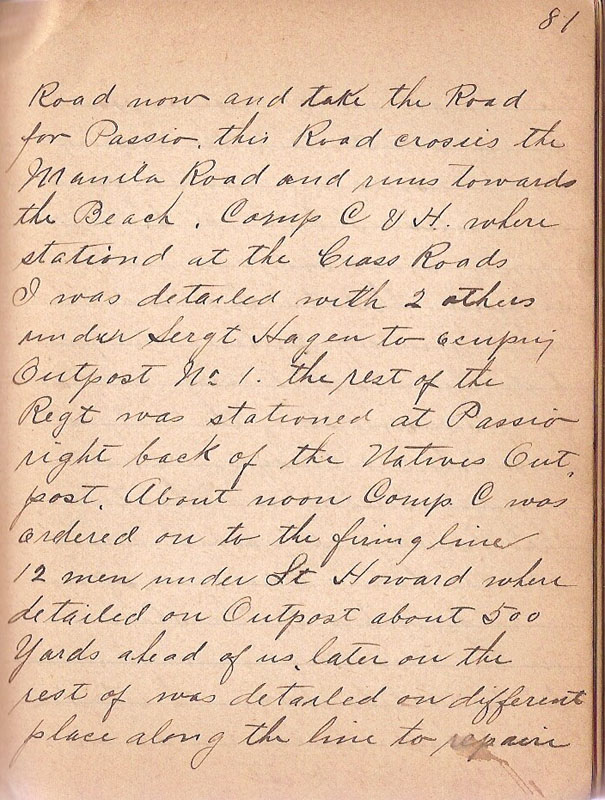 81
Road now and take the Road
for Passio, this Road crosses the
Manila Road and runs towards
the Beach. Comp C & H. where
stationd at the Crass Roads
I was detailed with 2 others
under Sergt Hagen to ocupiy
Outpost No 1. the rest of the
Regt was stationed at Passio
right back of the Natives Out,
post. About noon Comp. C was
ordered on to the firing line
12 men under Lt Howard where
detailed on Outpost about 500
Yards ahead of us, later on the
rest of was detailed on different
place along the line to repaire